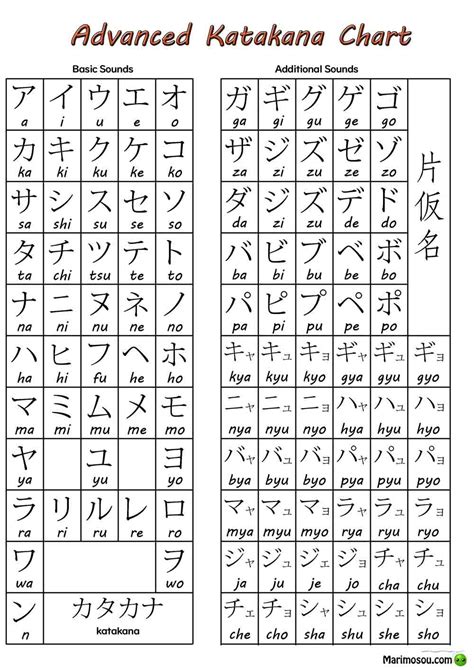 Advanced Katakana Chart
Basic Sounds
ア イ ウ エ オ
a i u e o
カ キ ク ケ コ
ka ki ku ke ko
サ シ ス セ ソ
sa shi su se so
タ チ ツ テ ト
ta chi tsu te to
ナ ニ ヌ ネ ノ
na ni nu ne no
ハ ヒ フ ヘ ホ
ha hi fu he ho
マ ミ ム メ モ
ma mi mu me mo
ヤ ユ ヨ
ya yu yo
ラ リ ル レ ロ
ra ri ru re ro
ワ ヲ
wa wo
ン カタカナ
n katakana
Additional Sounds
ガ ギ グ ゲ ゴ
ga gi gu ge go
ザ ジ ズ ゼ ゾ
za zi zu ze zo
ダ ジ ズ デ ド
da zi zu de do
バ ビ ブ ベ ボ
ba bi bu be bo
パ ピ プ ペ ポ
pa pi pu pe po
片仮名
キャ キュ キョ ギャ ギュ ギョ
kya kyu kyo gya gyu gyo
ニャ ニュ ニョ ヒャ ヒュ ヒョ
nya nyu nyo hya hyu hyo
バャ バュ バョ パャ パュ パョ
bya byu byo pya pyu pyo
マャ マュ マョ ラャ ラュ ラョ
mya myu myo rya ryu ryo
ジャ ジュ ジェ ジョ チャ チュ
ja ju je jo cha chu
チェ チョ シャ シュ シェ ショ
che cho sha shu she sho
Marimosou.com